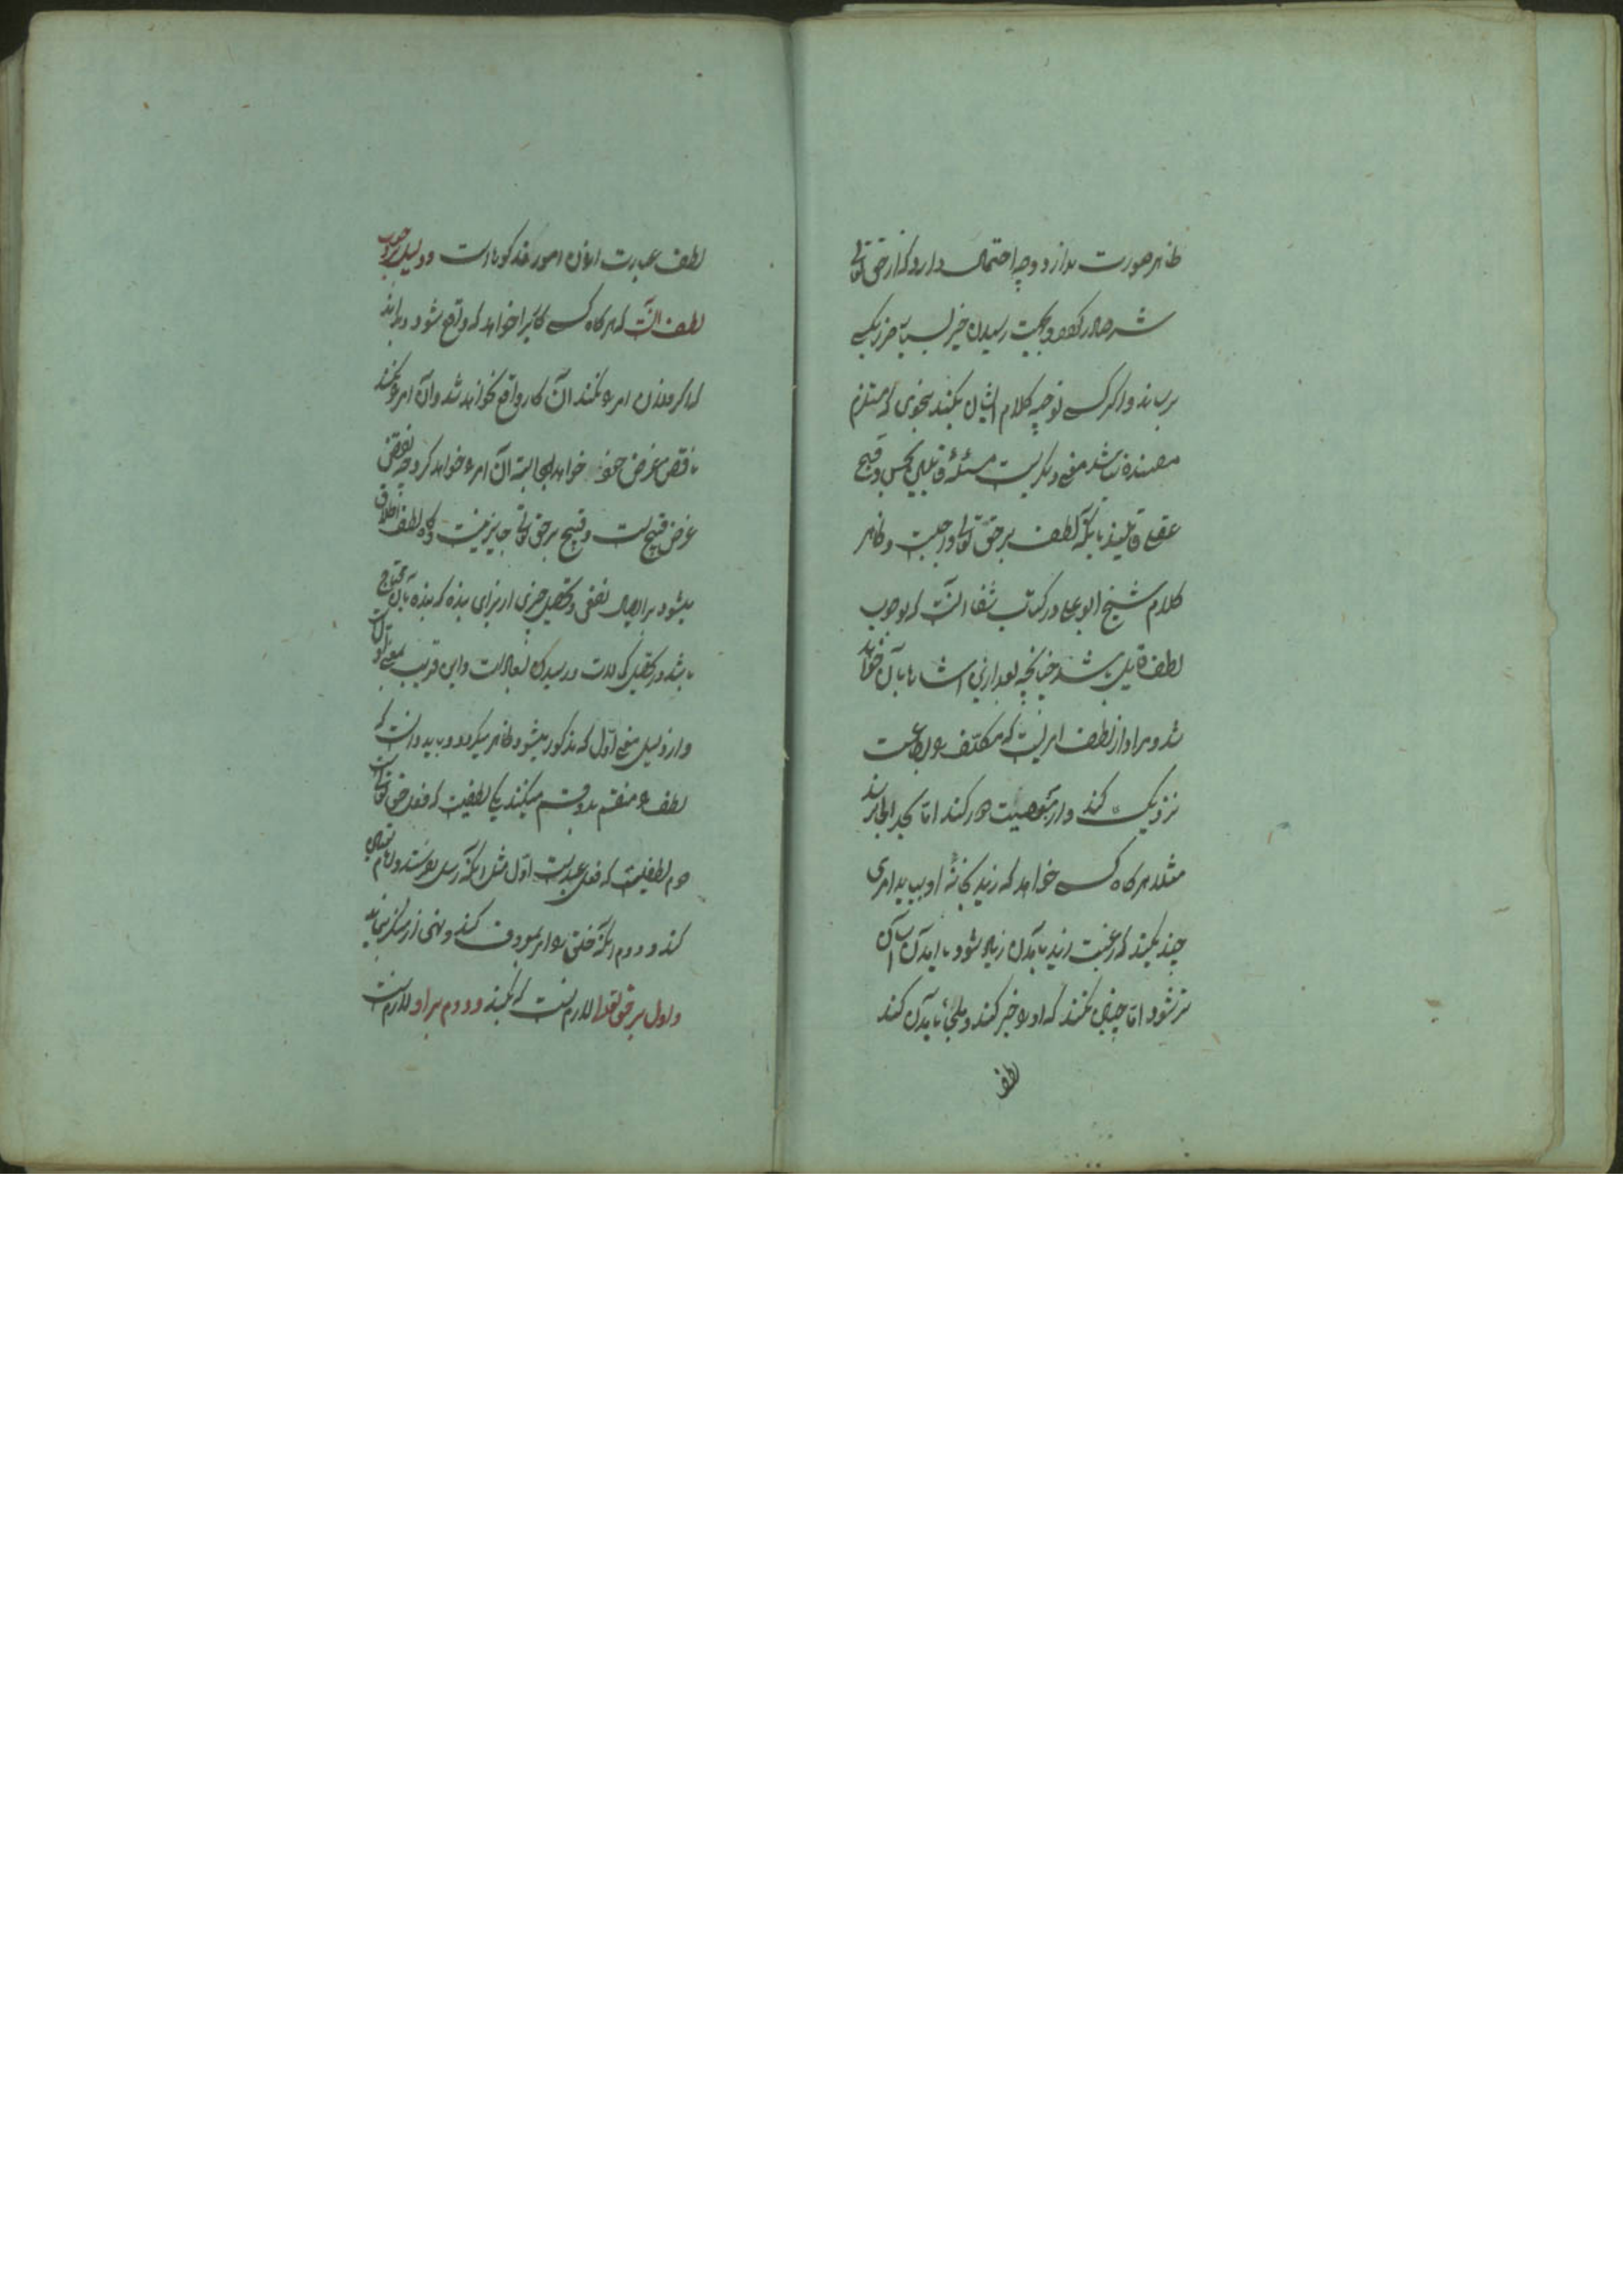 ظاهر صورت بد از دو وجه احتمال دارد که از حق تعالی
شر صادر کو و بجهت رسیدن خیر بسیار ضرر یکی
برساند و اگر کسی توجیه کلام ایشان بکند بنحوی که مستلزم
مفسده نباشد معنی دیگر است مسئله قایلین بحسن و قبح
عقلی قایلند بآنکه لطف بر حق تعالی واجبست و ظاهر
کلام شیخ ابو علی در کتاب شفا آنست که بوجوب
لطف قایل باشد چنانچه بعد ازین اشارها بآن خواهد
شد و مراد از لطف امریست که مکلف را بطاعت
نزدیک کند و از معصیت دور کند اما بحد الجا نرساند
مثلا هرگاه کسی خواهد که زید بخانه او بیاید امری
چند بکند که رغبت زید بآمدن زیاد شود یا آمدن آسان
تر شود اما چنان نکند که او را جبر کند و ملجأ بآمدن کند
لطف
لطف عبارت ازان امور مذکوره است و دلیل بر وجوب
لطف آنست که هرگاه کسی کاری را خواهد که واقع شود و داند
که اگر فلان امر را نکند آن کار واقع نخواهد شد و آن امر را نکند
ناقض غرض خود خواهد بود البته آن امر را خواهد کرد چه نقض
غرض قبیح است و قبیح بر حق تعالی جایز نیست و گاه لطف اطلاق
میشود بر ایصال نفعی و تحصیل چیزی از برای بنده که بنده بآن محتاج
باشد در تحصیل کمالات و رسیدن بسعادات و این قریب بمعنی اول است
و از دلیل معنی اول که مذکور میشود ظاهر میگردد و باید دانست که
لطف را منقسم بدو قسم میکنند یکی لطفیست که فعل حق تعالی است
دوم لطفیست که فعل عبد است اول مثل آنکه رسل بفرستد و امام تعیین
کند و دوم آنکه خلق را امر بمعروف کند و نهی از منکر نماید
و اول بر حق تعالی لازمست که بکند و دوم بر او لازم نیست